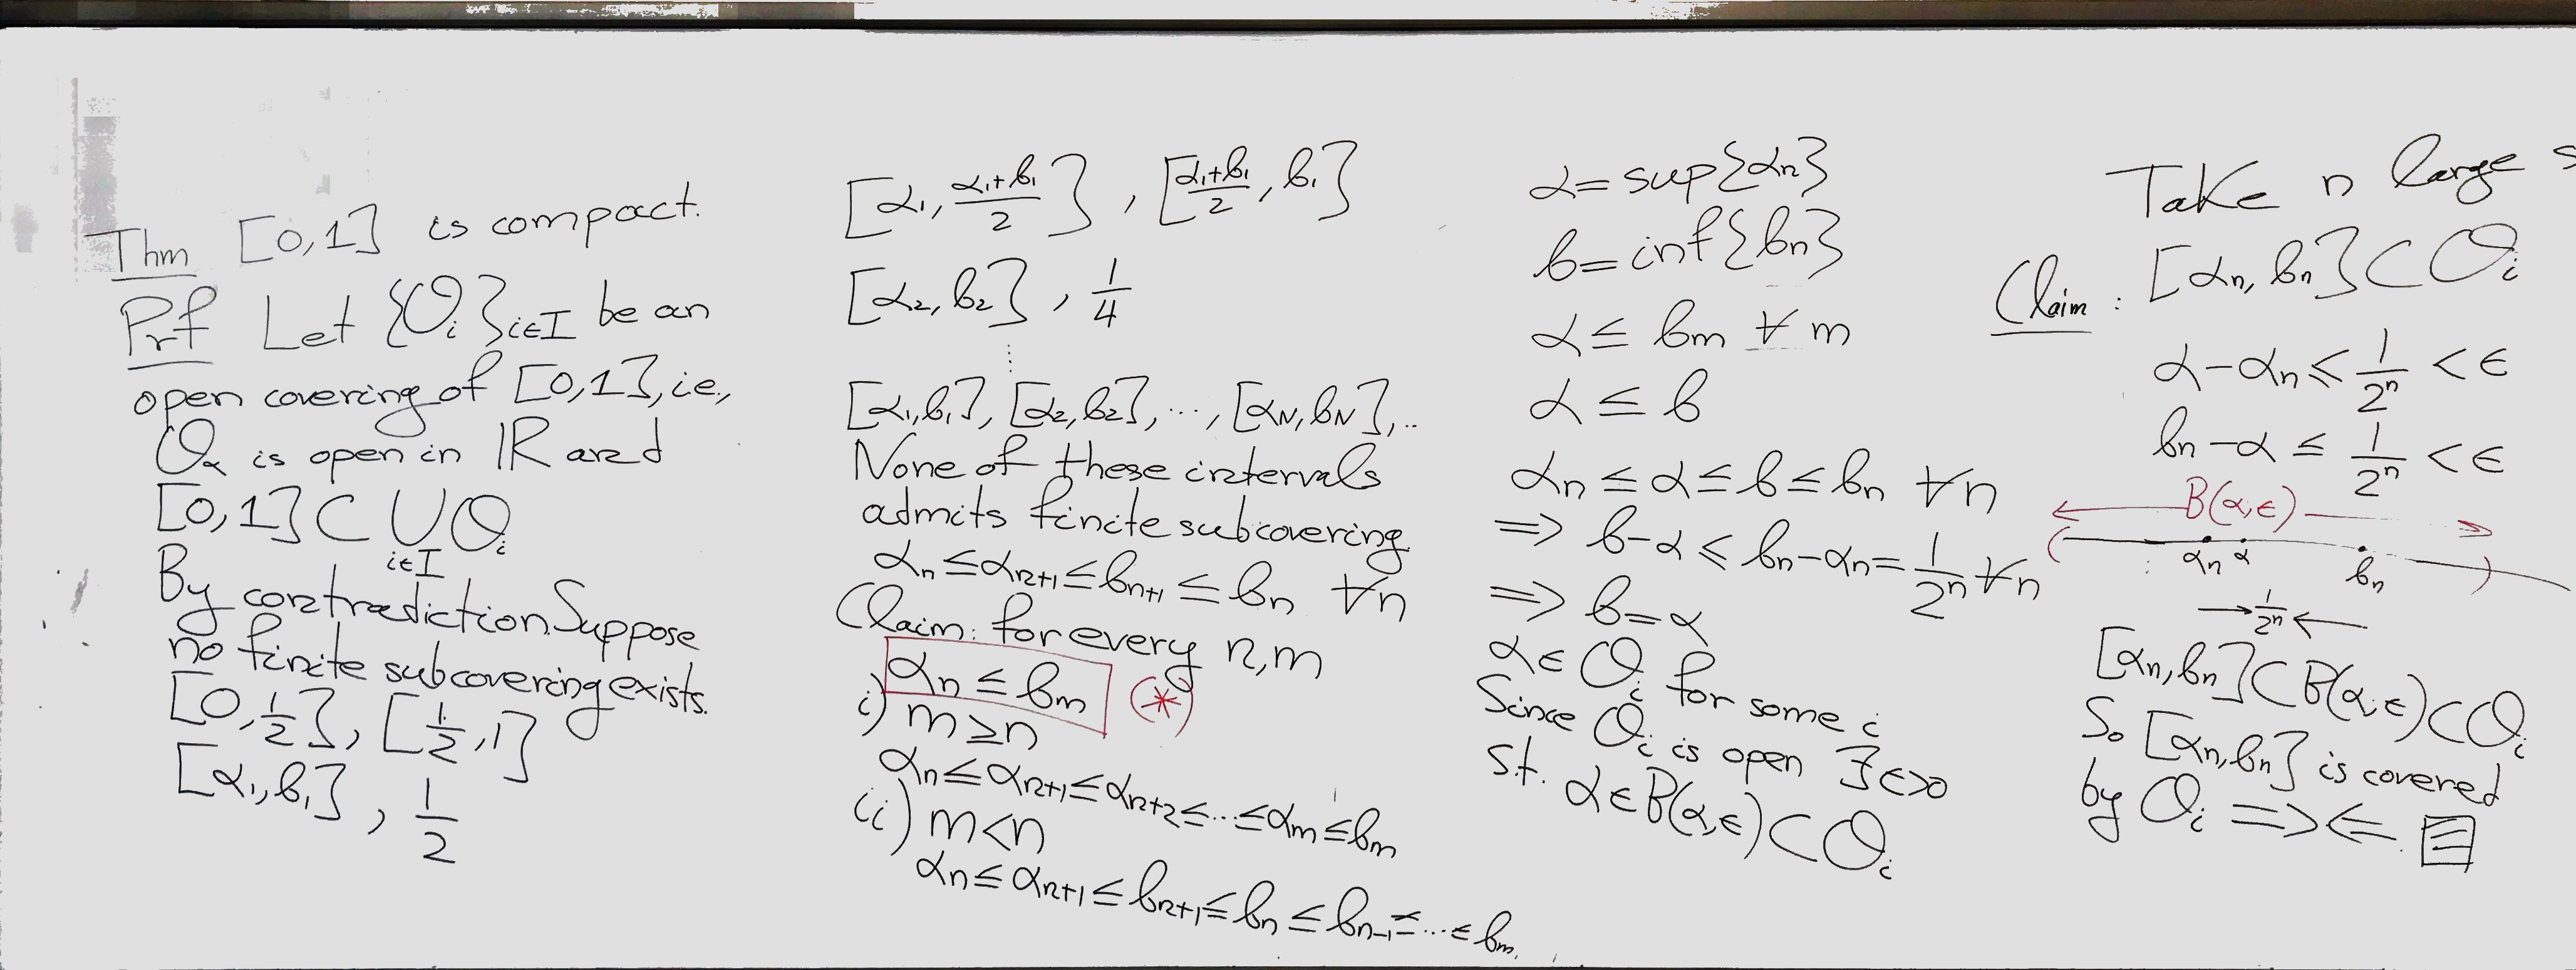 Thm [0,1] is compact.
Prf Let {O_i}_{i∈I} be an
open covering of [0,1], i.e.,
O_α is open in ℝ and
[0,1] ⊂ ∪_{i∈I} O_i
By contradiction. Suppose
no finite subcovering exists.
[0, 1/2], [1/2, 1]
[α_1, b_1], 1/2
[α_1, (α_1+b_1)/2], [(α_1+b_1)/2, b_1]
[α_2, b_2], 1/4
⋮
[α_1, b_1], [α_2, b_2], ..., [α_N, b_N], ..
None of these intervals
admits finite subcovering.
α_n ≤ α_{n+1} ≤ b_{n+1} ≤ b_n ∀n
Claim: for every n, m
α_n ≤ b_m (*)
i) m ≥ n
α_n ≤ α_{n+1} ≤ α_{n+2} ≤ ... ≤ α_m ≤ b_m
ii) m < n
α_n ≤ α_{n+1} ≤ b_{n+1} ≤ b_n ≤ b_{n-1} ≤ ... ≤ b_m.
α = sup{α_n}
b = inf{b_n}
α ≤ b_m ∀ m
α ≤ b
α_n ≤ α ≤ b ≤ b_n ∀n
⇒ b-α ≤ b_n-α_n = 1/2^n ∀n
⇒ b = α
α ∈ O_i for some i
Since O_i is open ∃ ϵ>0
s.t. α ∈ B(α,ϵ) ⊂ O_i
Take n large s
Claim: [α_n, b_n] ⊂ O_i
α-α_n ≤ 1/2^n < ϵ
b_n-α ≤ 1/2^n < ϵ
B(α,ϵ)
( α_n α b_n )
→ 1/2^n ←
[α_n, b_n] ⊂ B(α,ϵ) ⊂ O_i
So [α_n, b_n] is covered
by O_i ⇒⇐